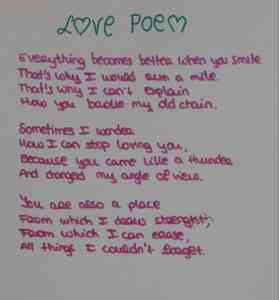 LOVE POEM
Everything becomes better when you smile
That's why I would run a mile.
That's why I can't explain
How you my old chain.
Sometimes I wonder
How I can stop loving you,
Because you came like a thunder
And changed my angle of view.
You are also a place
From which I draw strenght,
From which I can erase,
All things I couldn't forget.